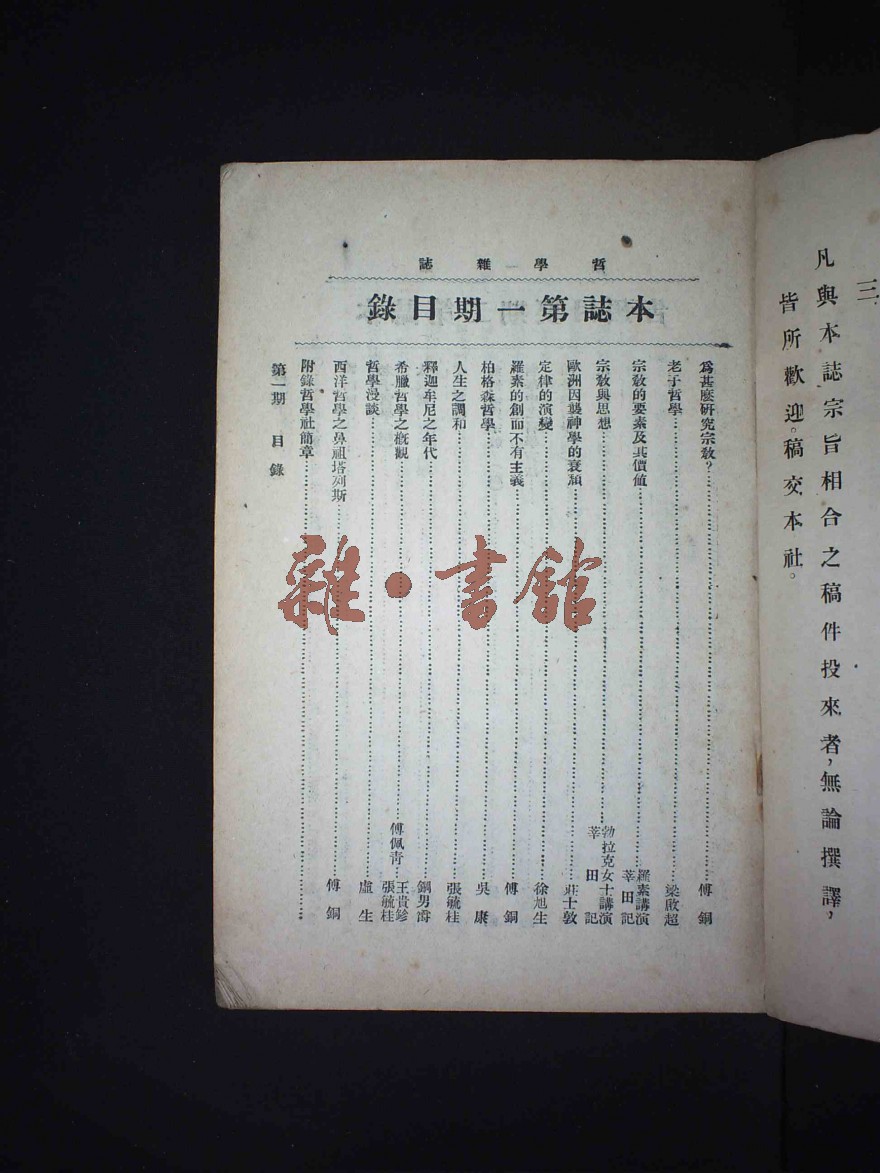 三
凡與本誌宗旨相合之稿件投來者,無論撰譯,
皆所歡迎。稿交本社。
哲學雜誌
本誌第一期目錄
爲甚麼研究宗教?……傅銅
老子哲學……梁啟超
宗教的要素及其價値……羅素講演 莘田記
宗教與思想……勃拉克女士講演 莘田記
歐洲因襲神學的衰頹……莊士敦
定律的演變……徐旭生
羅素的創而不有主義……傅銅
柏格森哲學……吳康
人生之調和……張毓桂
釋迦牟尼之年代……鋼男爵
希臘哲學之概觀……傅佩青 王貴鉁 張毓桂
哲學漫談……盧生
西洋哲學之鼻祖塔列斯……傅銅
附錄哲學社簡章……
第一期 目錄
雜·書館